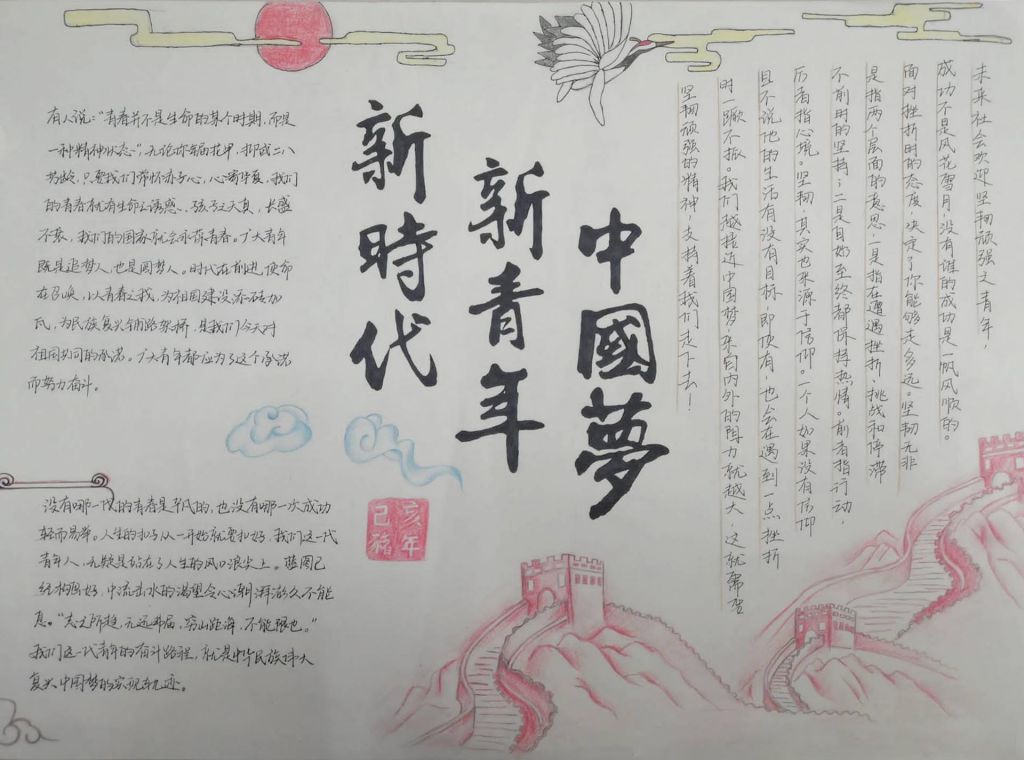 中國夢
新青年
新時代
未来社会欢迎坚韧顽强之青年，
成功不是风花雪月，没有谁的成功是一帆风顺的。
面对挫折时的态度，决定了你能够走多远。坚韧无非
是指两个层面的意思，一是指在遭遇挫折、挑战和停滞
不前时的坚持；二是自始至终都保持热情。前者指行动，
后者指心境。坚韧，其实也来源于信仰。一个人如果没有信仰
且不说他的生活有没有目标，即使有，也会在遇到一点挫折
时一蹶不振。我们越接近中国梦，来自内外的阻力就越大，这就需要
坚韧顽强的精神，支持着我们走下去！
有人说："青春并不是生命的某个时期，而是
一种精神状态"，无论你年届花甲，抑或二八
芳龄，只要我们常怀赤子心，心骛华夏，我们
的青春就有生命之诱惑、孩子之天真，长盛
不衰，我们的国家就会永葆青春。广大青年
既是追梦人，也是圆梦人。时代在前进，使命
在召唤，以青春之我，为祖国建设添砖加
瓦，为民族复兴铺路架桥，是我们今天对
祖国共同的承诺。广大青年都应为了这个承诺
而努力奋斗。
没有哪一代的青春是平凡的，也没有哪一次成功
轻而易举。人生的扣子从一开始就要扣好，我们这一代
青年人，无疑是站在了人生的风口浪尖上。蓝图已
经构强好，中流击水的渴望令心潮澎湃久不能
息。"志之所趋，无远弗届，穷山距海，不能限也。"
我们这一代青年的奋斗路程，就是中华民族伟大
复兴中国梦的实现轨迹。
亥年
己